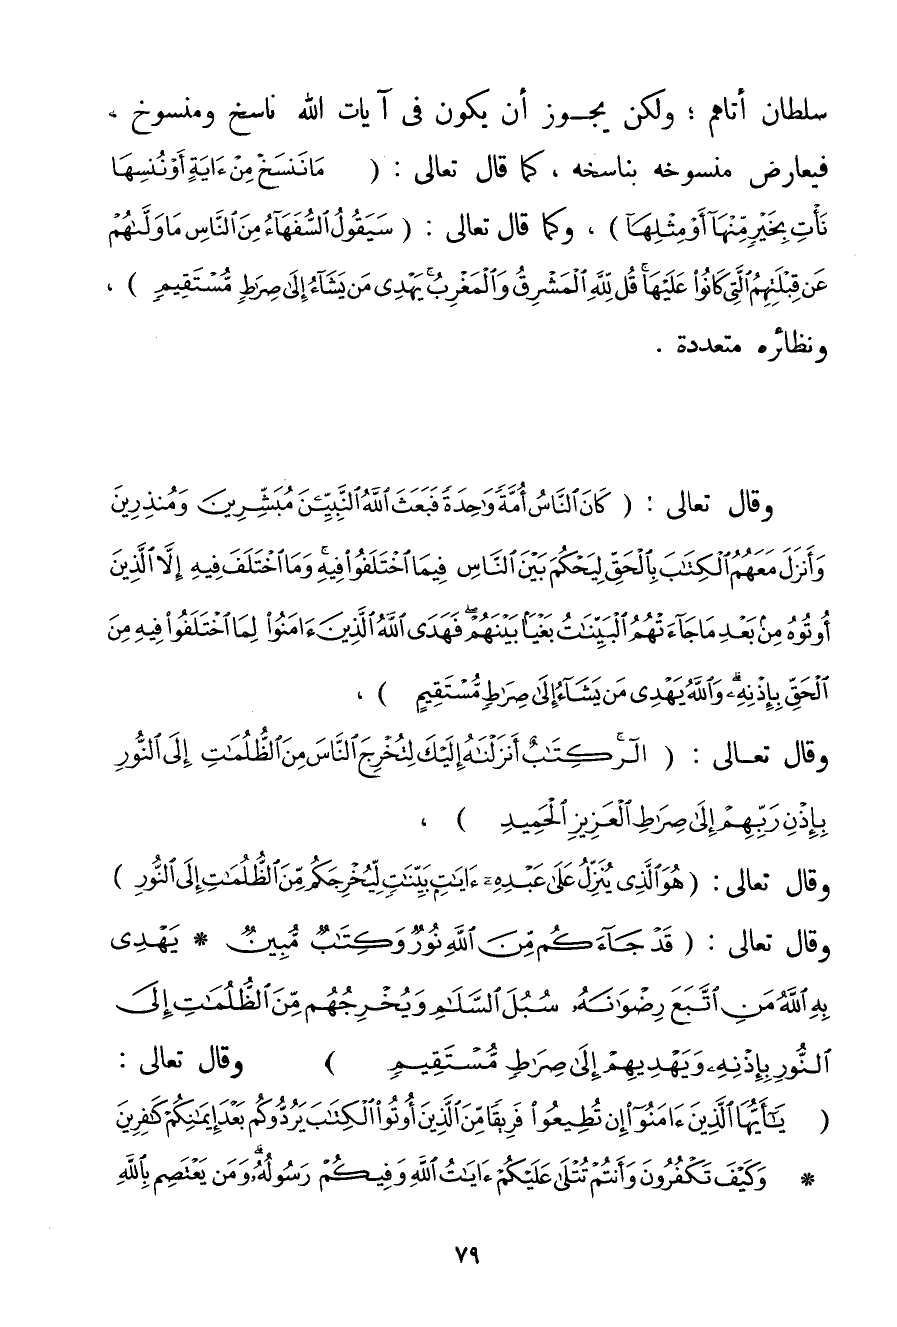 سلطان أتاهم ؛ ولكن يجـوز أن يكون فى آيات الله ناسخ ومنسوخ ،
فيعارض منسوخه بناسخه ، كما قال تعالى : ( مَا نَنسَخْ مِنْ ءَايَةٍ أَوْ نُنسِهَا
نَأْتِ بِخَيْرٍ مِّنْهَآ أَوْ مِثْلِهَآ ) ، وكما قال تعالى : ( سَيَقُولُ ٱلسُّفَهَآءُ مِنَ ٱلنَّاسِ مَا وَلَّىٰهُمْ
عَن قِبْلَتِهِمُ ٱلَّتِى كَانُوا۟ عَلَيْهَا ۚ قُل لِّلَّهِ ٱلْمَشْرِقُ وَٱلْمَغْرِبُ ۚ يَهْدِى مَن يَشَآءُ إِلَىٰ صِرَٰطٍ مُّسْتَقِيمٍ ) ،
ونظائره متعددة .
وقال تعالى : ( كَانَ ٱلنَّاسُ أُمَّةً وَٰحِدَةً فَبَعَثَ ٱللَّهُ ٱلنَّبِيِّـۧنَ مُبَشِّرِينَ وَمُنذِرِينَ
وَأَنزَلَ مَعَهُمُ ٱلْكِتَٰبَ بِٱلْحَقِّ لِيَحْكُمَ بَيْنَ ٱلنَّاسِ فِيمَا ٱخْتَلَفُوا۟ فِيهِ ۚ وَمَا ٱخْتَلَفَ فِيهِ إِلَّا ٱلَّذِينَ
أُوتُوهُ مِنۢ بَعْدِ مَا جَآءَتْهُمُ ٱلْبَيِّنَٰتُ بَغْيًۢا بَيْنَهُمْ ۖ فَهَدَى ٱللَّهُ ٱلَّذِينَ ءَامَنُوا۟ لِمَا ٱخْتَلَفُوا۟ فِيهِ مِنَ
ٱلْحَقِّ بِإِذْنِهِۦ ۗ وَٱللَّهُ يَهْدِى مَن يَشَآءُ إِلَىٰ صِرَٰطٍ مُّسْتَقِيمٍ ) ،
وقال تعـالى : ( الٓر ۚ كِتَٰبٌ أَنزَلْنَٰهُ إِلَيْكَ لِتُخْرِجَ ٱلنَّاسَ مِنَ ٱلظُّلُمَٰتِ إِلَى ٱلنُّورِ
بِإِذْنِ رَبِّهِمْ إِلَىٰ صِرَٰطِ ٱلْعَزِيزِ ٱلْحَمِيدِ ) ،
وقال تعالى : ( هُوَ ٱلَّذِى يُنَزِّلُ عَلَىٰ عَبْدِهِۦٓ ءَايَٰتٍۭ بَيِّنَٰتٍ لِّيُخْرِجَكُم مِّنَ ٱلظُّلُمَٰتِ إِلَى ٱلنُّورِ )
وقال تعالى : ( قَدْ جَآءَكُم مِّنَ ٱللَّهِ نُورٌ وَكِتَٰبٌ مُّبِينٌ * يَهْدِى
بِهِ ٱللَّهُ مَنِ ٱتَّبَعَ رِضْوَٰنَهُۥ سُبُلَ ٱلسَّلَٰمِ وَيُخْرِجُهُم مِّنَ ٱلظُّلُمَٰتِ إِلَى
ٱلنُّورِ بِإِذْنِهِۦ وَيَهْدِيهِمْ إِلَىٰ صِرَٰطٍ مُّسْتَقِيمٍ ) وقال تعالى :
( يَٰٓأَيُّهَا ٱلَّذِينَ ءَامَنُوٓا۟ إِن تُطِيعُوا۟ فَرِيقًا مِّنَ ٱلَّذِينَ أُوتُوا۟ ٱلْكِتَٰبَ يَرُدُّوكُم بَعْدَ إِيمَٰنِكُمْ كَٰفِرِينَ
* وَكَيْفَ تَكْفُرُونَ وَأَنتُمْ تُتْلَىٰ عَلَيْكُمْ ءَايَٰتُ ٱللَّهِ وَفِيكُمْ رَسُولُهُۥ ۗ وَمَن يَعْتَصِم بِٱللَّهِ
٧٩